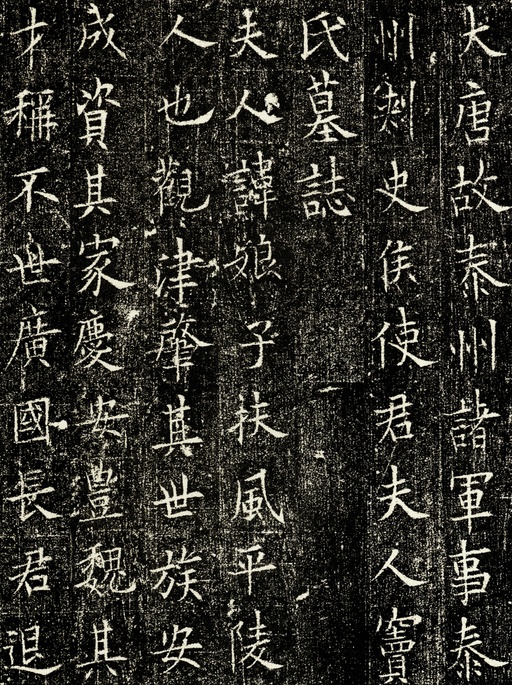 大唐故泰州諸軍事泰
州刾史侯使君夫人竇
氏墓誌
夫人諱娘子扶風平陵
人也觀津肇其世族安
成資其家慶安豊魏其
才稱不世廣國長君退